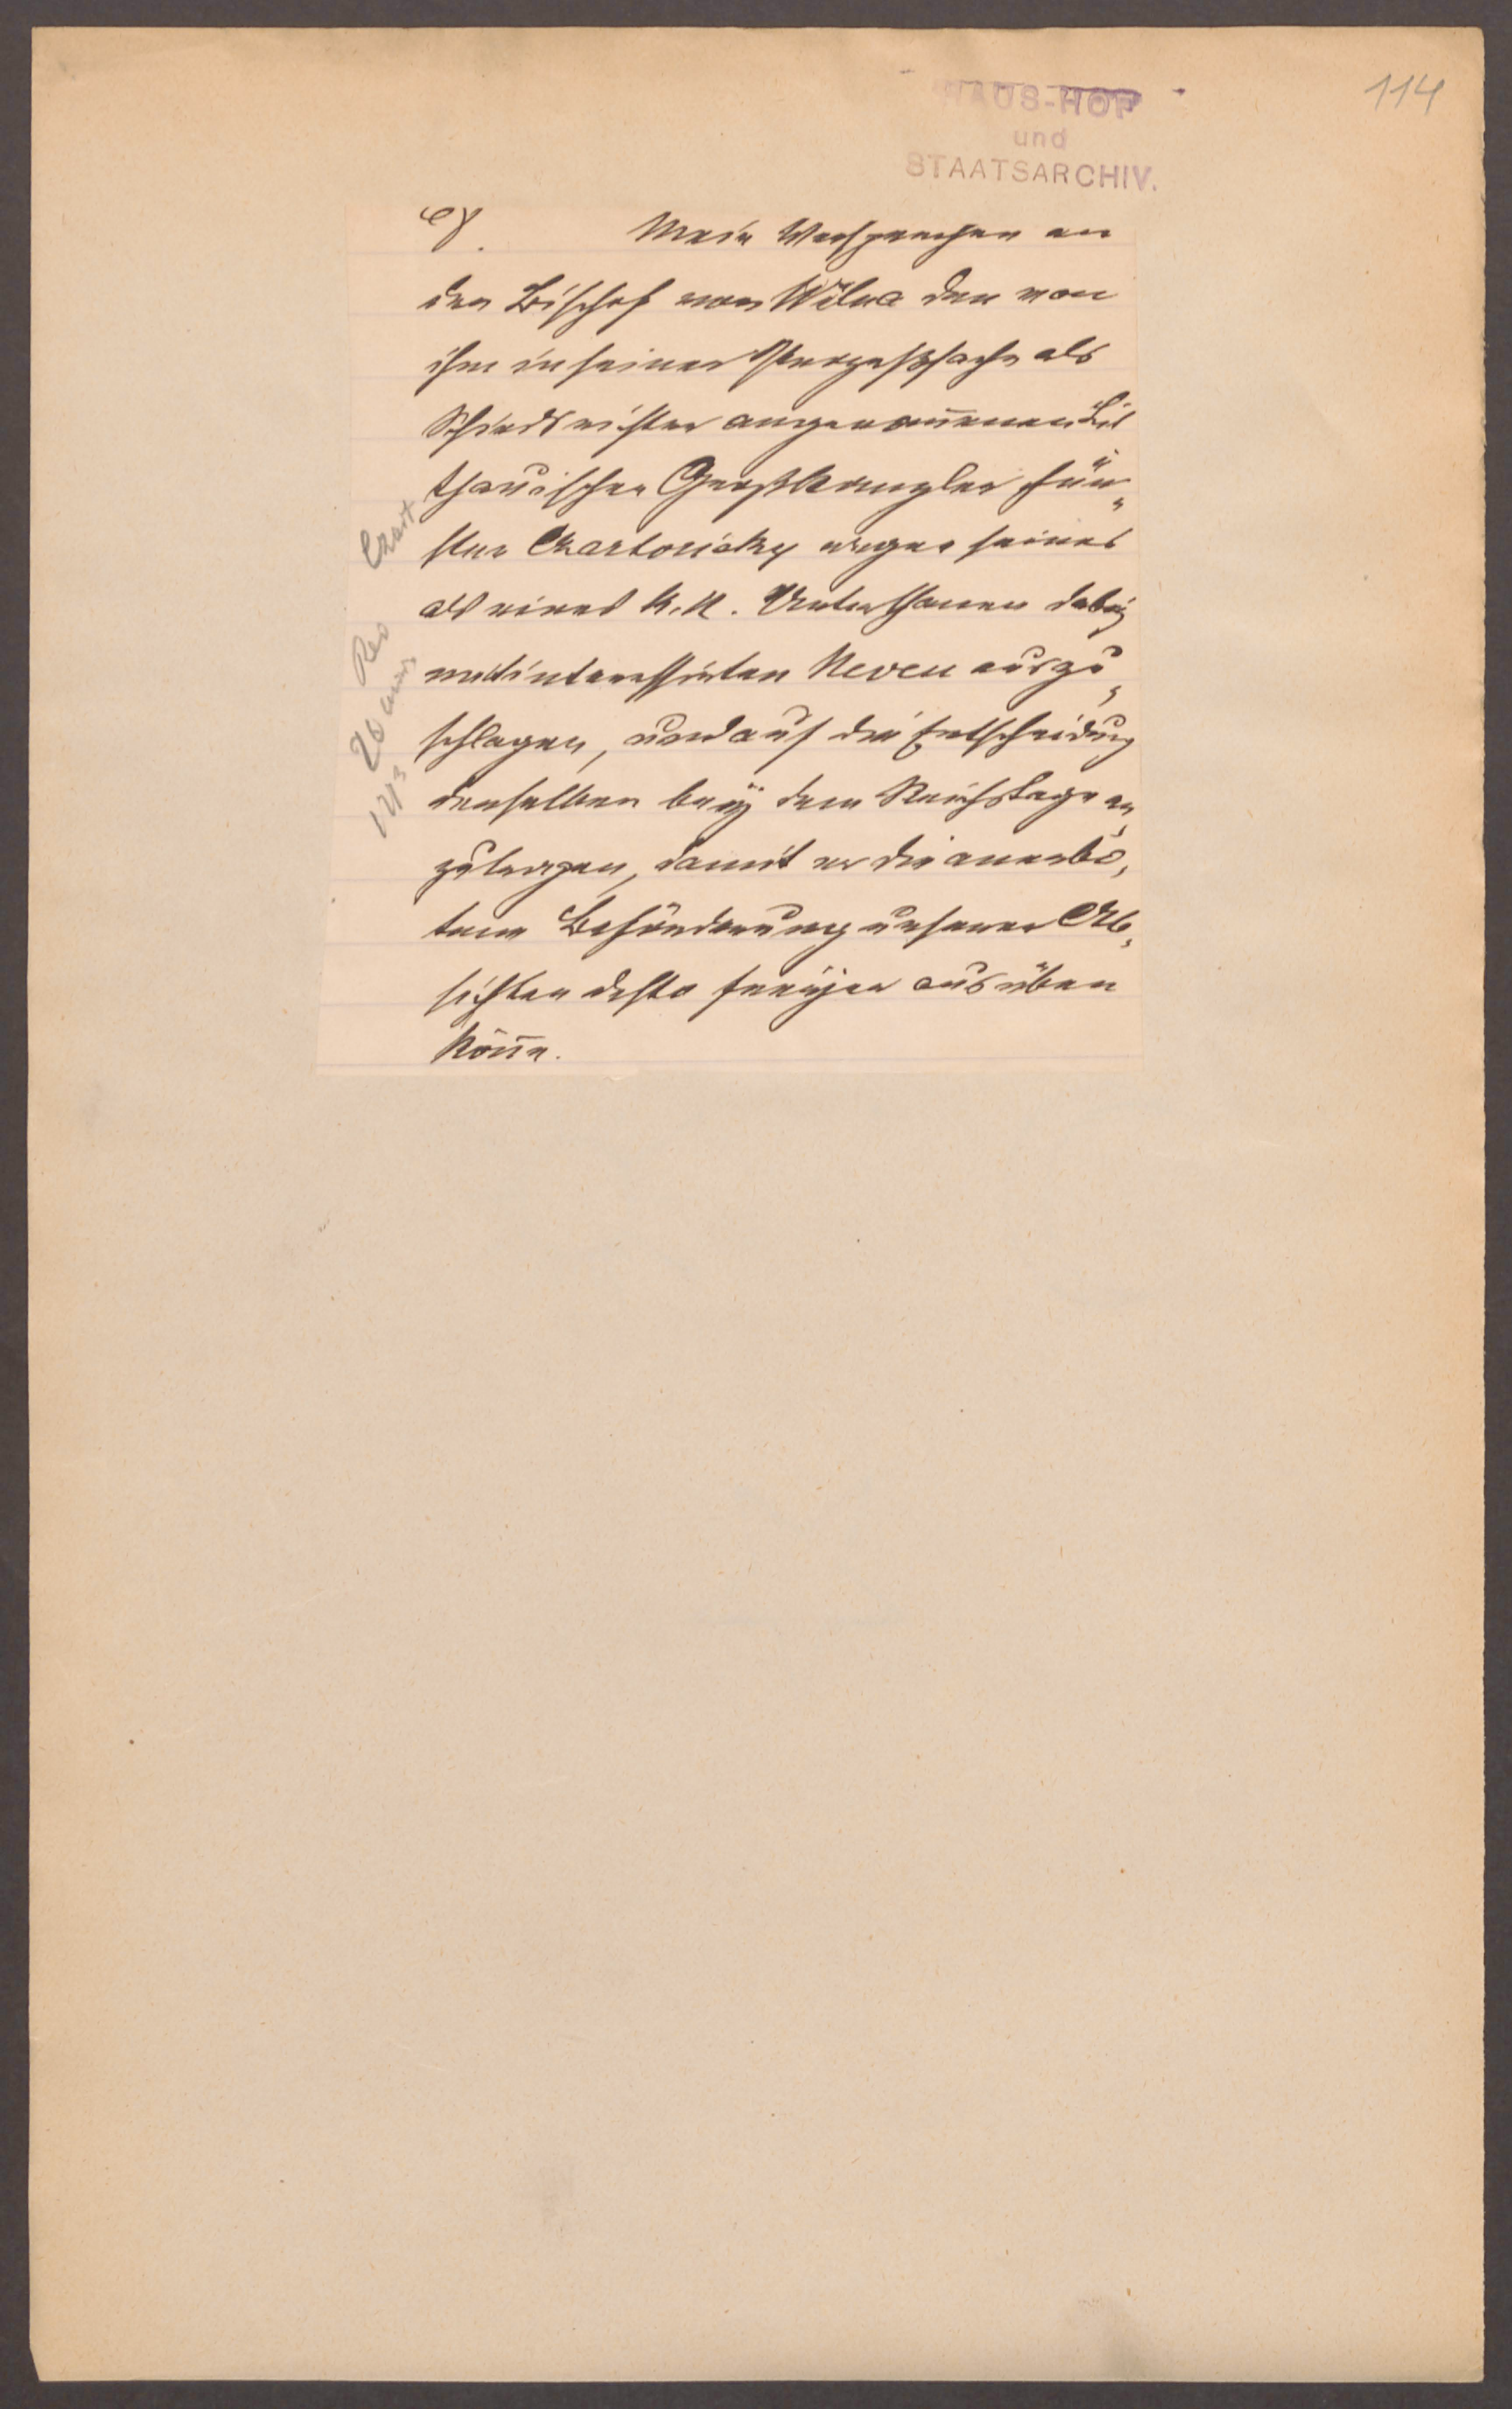 114
HAUS-HOF
und
STAATSARCHIV.
Mein Versprechen an
den Bischof von Wilna den von
ihm in seiner Prozeßsache als
Schiedsrichter angenom̅enen Lit
thauischen Großkanzler Für„
sten Czartorisky wegen seines
als eines K. K. Unterthanen dabey
mitinteressirten Neveu auszu„
schlagen, und auf die Entscheidung
derselben bey dem Reichstage an„
zutragen, damit er die anerbo„
tene Beförderung unserer Ab„
sichten desto freyer ausüben
kön̅e.
Czart
20